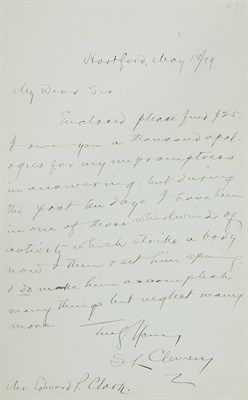 Hartford, May 18/89
My Dear Sir:
Enclosed please find $25.
I owe you a thousand apolo-
gies for my unpromptness
in answering; but during
the past ten days I have been
in one of those whirlwinds of
activity which strike a body
now & then & set him spinning,
& do make him accomplish
many things but neglect many
more.
Truly Yours
S L Clemens
Mr. Edward P. Clark.